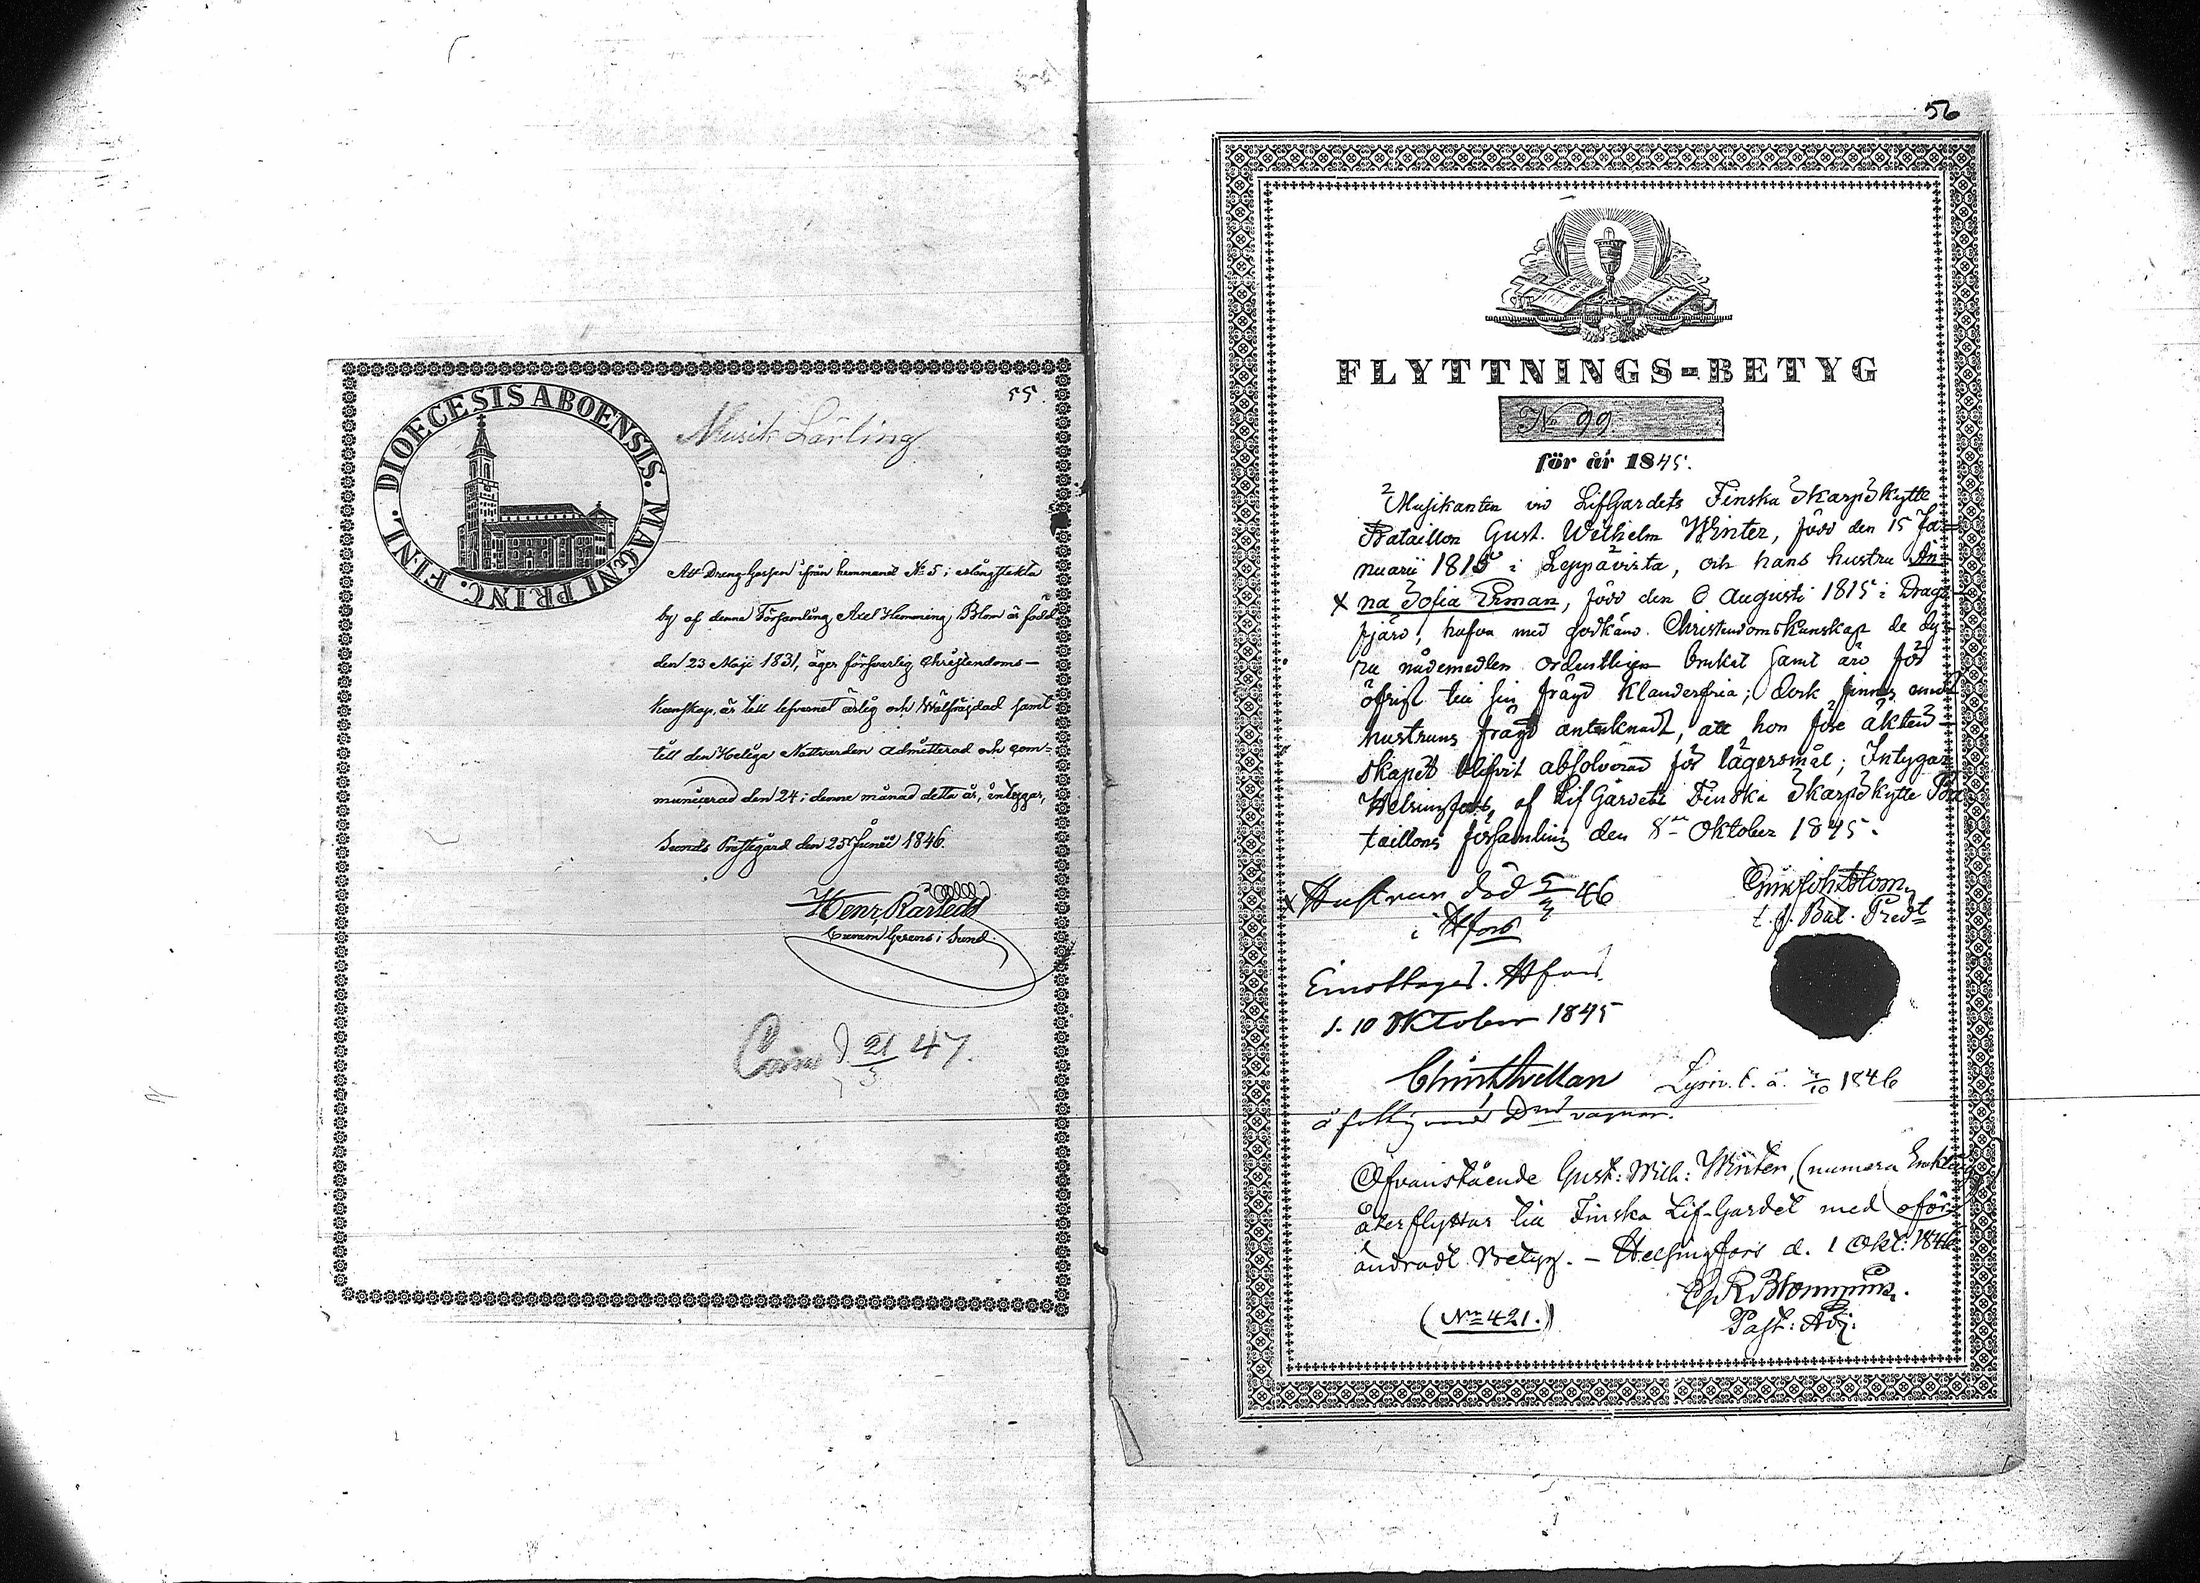 55.
DIOECESIS ABOENSIS. MAGNI PRINC. FINL.
Musik Lärling
Att Dreng Gossen ifrån hemmanet No 5 i Mångstekta
by af denne Församling Axel Hemming Blom är född
den 23 Maji 1831, äger försvarlig Christendoms-
kunskap, är till lefvernet ärlig och Wälfrägdad samt
till den Heliga Nattvarden admitterad och com-
municerad den 24 i denne månad detta år, intygar,
Sunds Prestgård den 25 Junii 1846.
Henr.
Curam Gerens i Sund.
d 21/3 47.
56
FLYTTNINGS-BETYG
No 99
för år 1845.
Musikanten vid LifGardets Finska Skarpskytte
Bataillon Gust. Wilhelm Winter, född den 15 Ja-
nuarii 1815 i Leppävirta, och hans hustru An-
x na Sofia Erman, född den 6 Augusti 1815 i Drags-
fjärd, hafva med godkänd Christendomskunskap de dy-
ra nådemedlen ordentligen brukat samt äro för
öfrigt till sin frägd klanderfria; dock finnes vid
hustruns frägd antecknadt, att hon före äkten-
skapet blifvit absolverad för lägersmål; Intygar
Helsingfors, af Lif Gardets Finska Skarpskytte Ba-
taillons församling den 8de Oktober 1845.
x Hustrun död 5/3 46
i Hfors
t. f. Bat. Predt
Emottaget. Hfors
d. 10 Oktober 1845
1/10 1846
Ofvanstående Gust: Wilh: Winter, (numera Enkling)
återflyttar till Finska Lif-Gardet med oför-
ändradt Betyg. - Helsingfors d. 1 Okt: 1846
Past: Adj:
(No 421.)